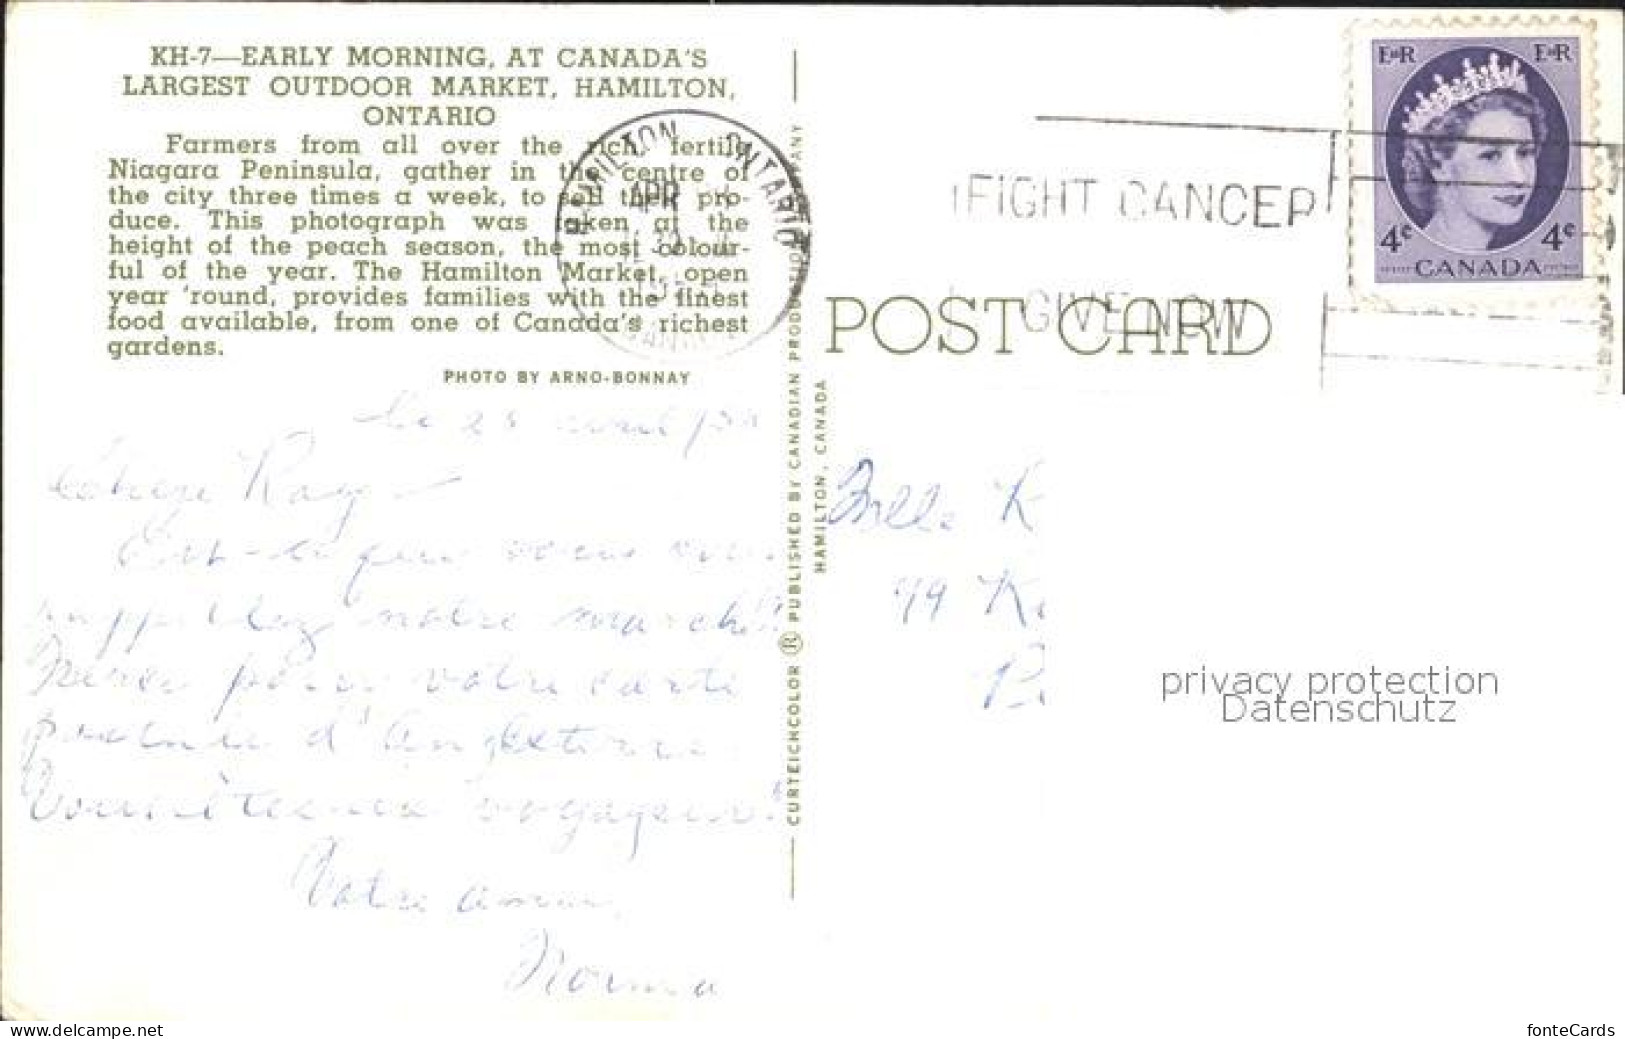 KH-7—EARLY MORNING, AT CANADA'S
LARGEST OUTDOOR MARKET, HAMILTON,
ONTARIO
Farmers from all over the rich, fertile
Niagara Peninsula, gather in the centre of
the city three times a week, to sell their pro-
duce. This photograph was taken at the
height of the peach season, the most colour-
ful of the year. The Hamilton Market, open
year 'round, provides families with the finest
food available, from one of Canada's richest
gardens.
PHOTO BY ARNO-BONNAY
HAMILTON ONTARIO
APR
FIGHT CANCER
GIVE NOW
EIIR EIIR
4c 4c
CANADA
POST CARD
CURTEICHCOLOR ® PUBLISHED BY CANADIAN PRODUCTION COMPANY
HAMILTON, CANADA
Le avril
Chère Kaye
Est-ce que vous
notre marché?
Merci pour votre carte
postale d'Angleterre
Vous êtes voyageur!
Votre amie,
Norma
Mlle K
49 K
privacy protection
Datenschutz
www.delcampe.net
fonteCards